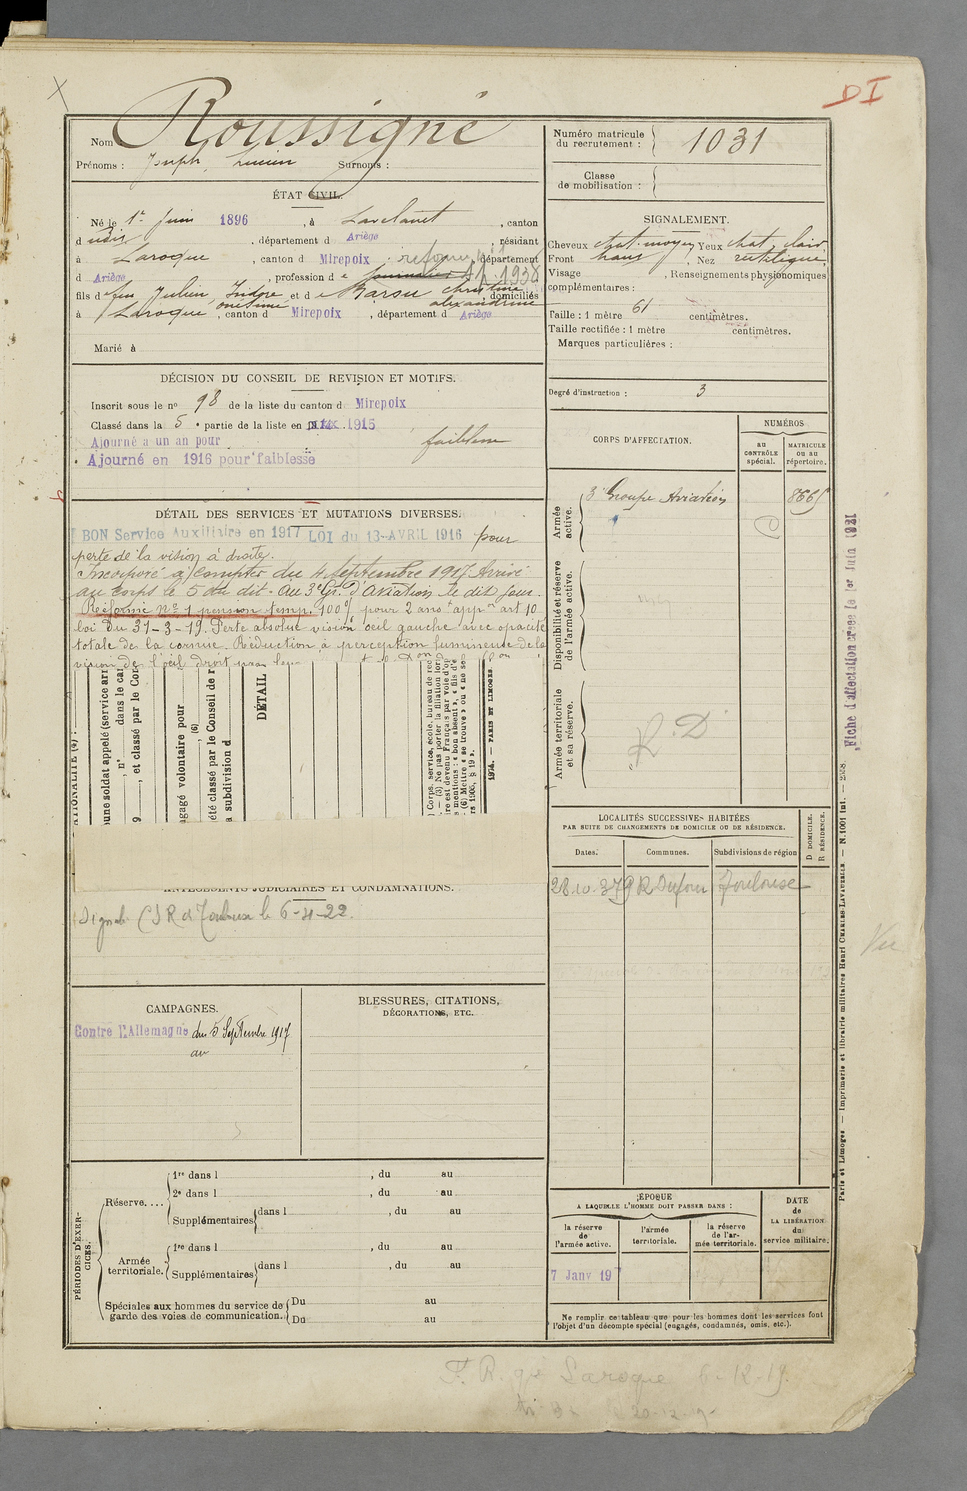 DI
Nom Roussigné
Prénoms : Joseph Lucien Surnoms :
ÉTAT CIVIL.
Né le 1er Juin 1896, à Lavelanet, canton
d udis, département d Ariège, résidant
à Laroque, canton d Mirepoix, département
d Ariège, profession d
fils d feu Julien Isidore et d e Marsu Christine, domiciliés
à Laroque onésime, canton d Mirepoix alexandrine, département d Ariège
Marié à
DÉCISION DU CONSEIL DE REVISION ET MOTIFS.
Inscrit sous le no 98 de la liste du canton d Mirepoix
Classé dans la 5e partie de la liste en 1915
Ajourné a un an pour faiblesse
Ajourné en 1916 pour faiblesse
DÉTAIL DES SERVICES ET MUTATIONS DIVERSES.
BON Service Auxiliaire en 1917 LOI du 13 AVRIL 1916 pour
perte de la vision à droite.
Incorporé à compter du 4 Septembre 1917 Arrivé
au corps le 5 du dit. Au 3e Gr. d'Aviation le dit jour.
Réformé No 1 pension temp. 100% pour 2 ans appon art 10
loi du 31-3-19. Perte absolue vision oeil gauche avec opacité
totale de la cornée. Réduction à perception lumineuse de la
vision de l'oeil droit
DÉTAIL
ANTÉCÉDENTS JUDICIAIRES ET CONDAMNATIONS.
CSR d Toulouse le 6-11-22.
CAMPAGNES.
Contre l'Allemagne du 5 Septembre 1917
au
BLESSURES, CITATIONS,
DÉCORATIONS, ETC.
PÉRIODES D'EXERCICES.
Réserve....
1re dans l , du au
2e dans l , du au
Supplémentaires dans l , du au
Armée territoriale.
1re dans l , du au
Supplémentaires dans l , du au
Spéciales aux hommes du service de garde des voies de communication.
Du au
Du au
Numéro matricule du recrutement : 1031
Classe de mobilisation :
SIGNALEMENT.
Cheveux chat. moyen Yeux chat. clair
Front haut, Nez rectiligne,
Visage , Renseignements physionomiques
complémentaires :
Taille : 1 mètre 61 centimètres.
Taille rectifiée : 1 mètre centimètres.
Marques particulières :
Degré d'instruction : 3
CORPS D'AFFECTATION.
NUMÉROS
au CONTRÔLE spécial.
MATRICULE ou au répertoire.
Armée active.
3e Groupe Aviation
8665
Disponibilité et réserve de l'armée active.
Armée territoriale et sa réserve.
R.D
LOCALITÉS SUCCESSIVES HABITÉES
PAR SUITE DE CHANGEMENTS DE DOMICILE OU DE RÉSIDENCE.
D DOMICILE.
R RÉSIDENCE.
Dates. Communes. Subdivisions de région
28.10.37 9 R Dufour Toulouse
ÉPOQUE
A LAQUELLE L'HOMME DOIT PASSER DANS :
la réserve de l'armée active.
l'armée territoriale.
la réserve de l'armée territoriale.
DATE de LA LIBÉRATION du service militaire.
7 Janv 19
Ne remplir ce tableau que pour les hommes dont les services font
l'objet d'un décompte spécial (engagés, condamnés, omis, etc.).
Fiche d'affectation créée le 1er Juin 1921
Paris et Limoges. — Imprimerie et librairie militaires Henri CHARLES-LAVAUZELLE — N. 1001 Int. — 228.
Vu
F. R. Laroque 6-12-19.